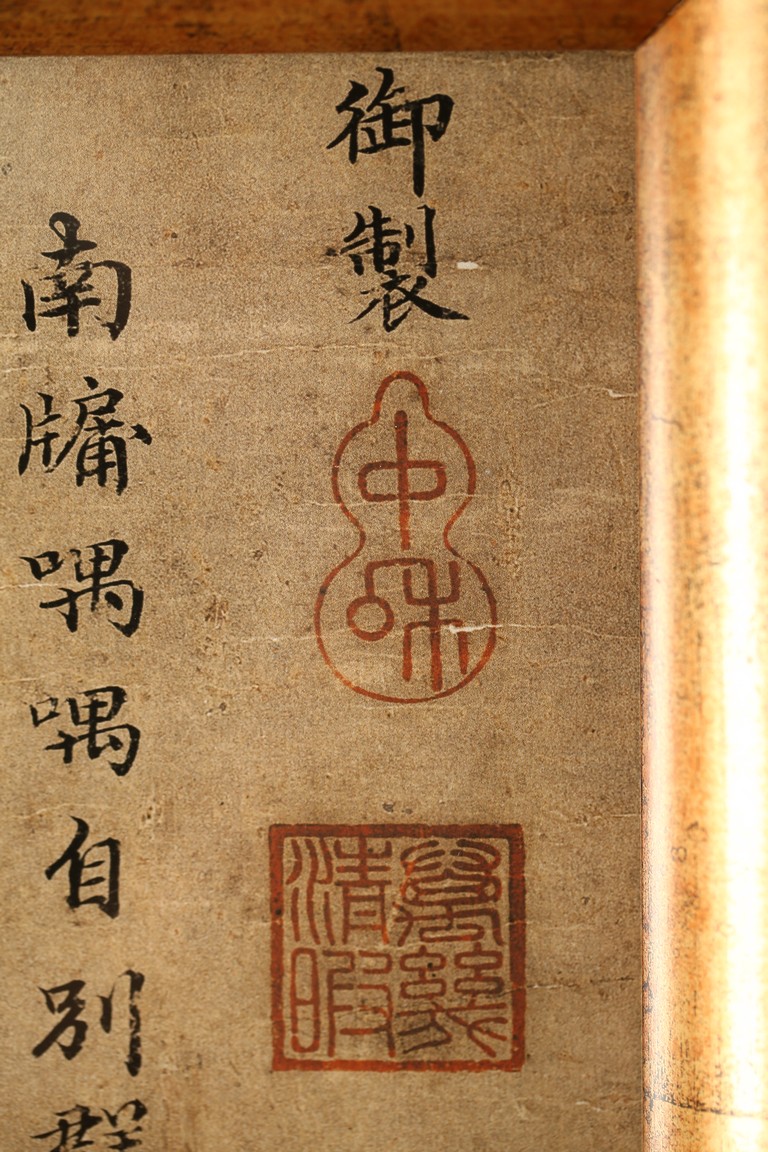 御製
中和
萬幾清暇
南牖喁喁自別